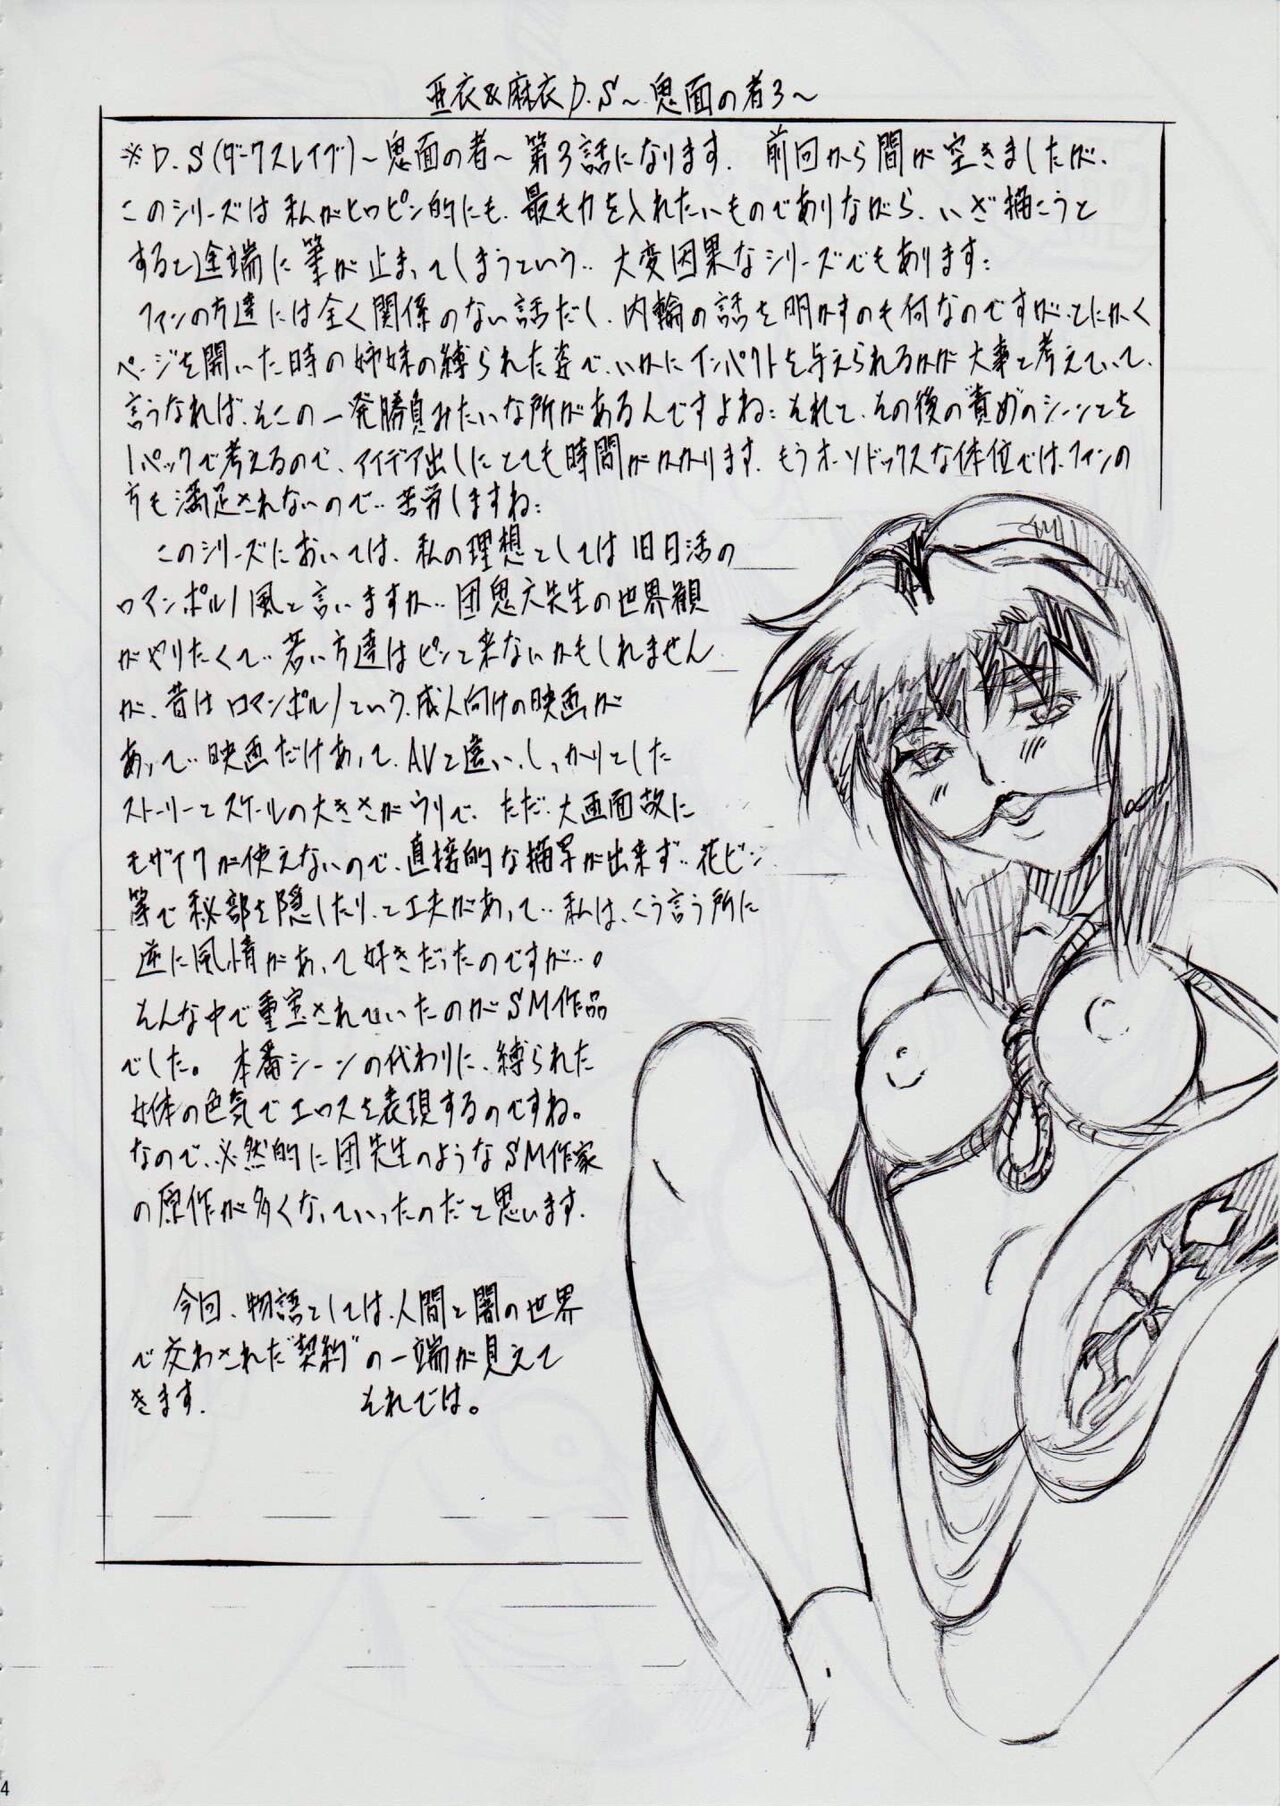 亜衣&麻衣D.S～鬼面の者3～
※D.S(ダークスレイブ)～鬼面の者～第3話になります. 前回から間が空きましたが、
このシリーズは私がヒロピン的にも、最も力を入れたいものでありながら、いざ描こうと
すると途端に筆が止まってしまうという‥大変因果なシリーズでもあります:
ファンの方達には全く関係のない話だし、内輪の話を明かすのも何なのですが‥とにかく
ページを開いた時の姉妹の縛られた姿で、いかにインパクトを与えられるかが大事と考えていて、
言うなれば、そこの一発勝負みたいな所があるんですよね:それと、その後の“責め”のシーンとを
1パックで考えるので、アイデア出しにとても時間がかかります. もうオーソドックスな体位では、ファンの
方も満足されないので‥苦労しますね:
このシリーズにおいては、私の理想としては旧日活の
ロマンポルノ風と言いますか‥団鬼六先生の世界観
がやりたくて‥若い方達はピンと来ないかもしれません
が、昔はロマンポルノという、成人向けの映画が
あって‥映画だけあって、AVと違い、しっかりとした
ストーリーとスケールの大きさがウリで、ただ‥大画面故に
モザイクが使えないので、直接的な描写が出来ず‥花ビン
等で秘部を隠したり、と工夫があって‥私は、こう言う所に
逆に風情があって好きだったのですが‥。
そんな中で重宝されていたのがSM作品
でした。本番シーンの代わりに、縛られた
女体の色気でエロスを表現するのですね。
なので、必然的に団先生のようなSM作家
の原作が多くなっていったのだと思います.
今回、物語としては、人間と闇の世界
で交わされた“契約”の一端が見えて
きます. それでは。
4